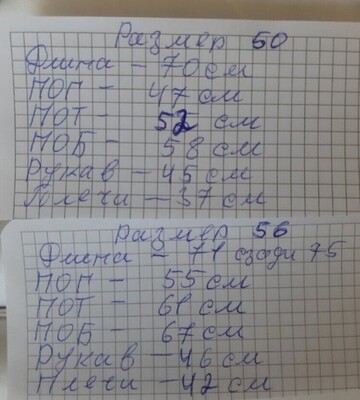 Размер 50
Длина - 70 см
ПОГ - 47 см
ПОТ - 52 см
ПОБ - 58 см
Рукав - 45 см
Плечи - 37 см
Размер 56
Длина - 71 сзади 75
ПОГ - 55 см
ПОТ - 61 см
ПОБ - 67 см
Рукав - 46 см
Плечи - 42 см